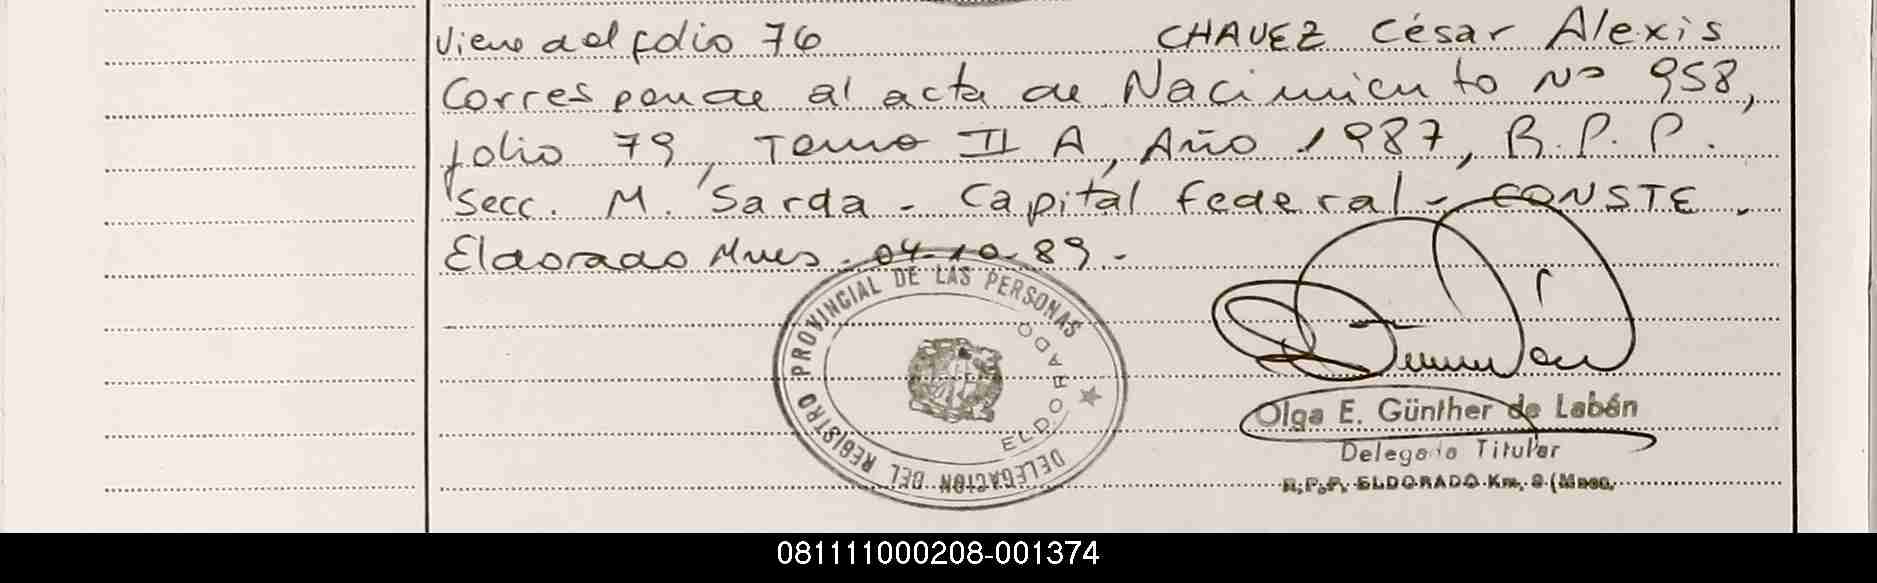 Viene del folio 76 CHAVEZ César Alexis
Corresponde al acta de Nacimiento Nº 958,
folio 79, Tomo II A, Año 1987, R.P.P.
Secc. M. Sarda - Capital Federal - CONSTE.
Eldorado Mnes - 04-10-89.-
DELEGACION DEL REGISTRO PROVINCIAL DE LAS PERSONAS
ELDORADO
Olga E. Günther de Labán
Delegada Titular
R.P.P. ELDORADO Km. 9 (Mnes.
081111000208-001374